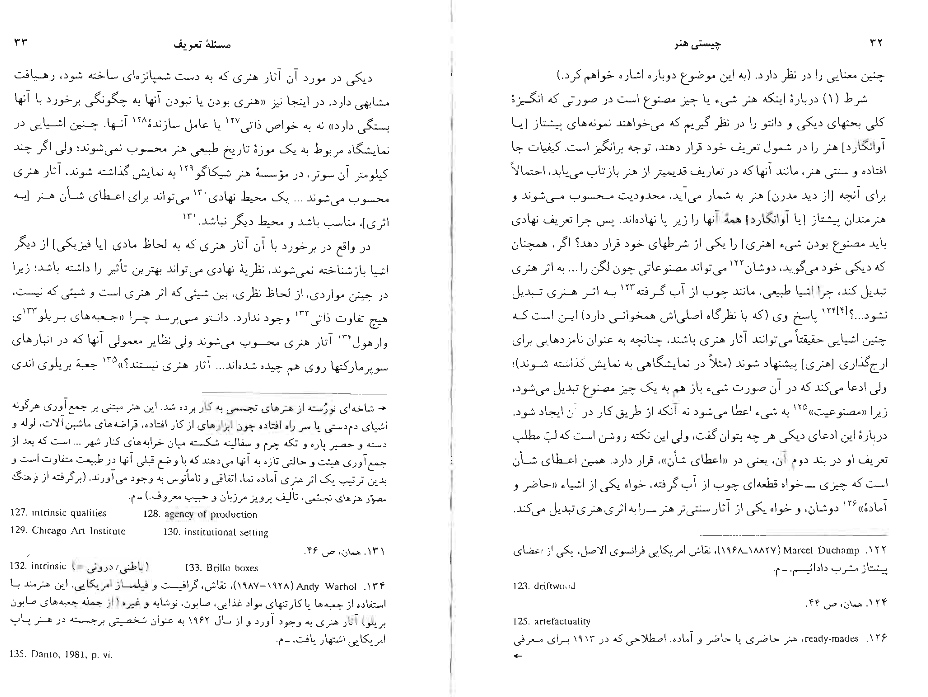 ۳۲
چیستی هنر
چنین معنایی را در نظر دارد. (به این موضوع دوباره اشاره خواهم کرد.)
شرط (۱) دربارهٔ اینکه هنر شیء یا چیز مصنوع است در صورتی که انگیزهٔ
کلی بحثهای دیکی و دانتو را در نظر گیریم که می‌خواهند نمونه‌های پیشتاز [یا
آوانگارد] هنر را در شمول تعریف خود قرار دهند، توجه برانگیز است. کیفیات جا
افتاده و سنتی هنر، مانند آنها که در تعاریف قدیمیتر از هنر بازتاب می‌یابد، احتمالاً
برای آنچه [از دید مدرن] هنر به شمار می‌آید، محدودیت محسوب می‌شوند و
هنرمندان پیشتاز [یا آوانگارد] همهٔ آنها را زیر پا نهاده‌اند. پس چرا تعریف نهادی
باید مصنوع بودن شیء [هنری] را یکی از شرطهای خود قرار دهد؟ اگر، همچنان
که دیکی خود می‌گوید، دوشان۱۲۲ می‌تواند مصنوعاتی چون لگن را ... به اثر هنری
تبدیل کند، چرا اشیا طبیعی، مانند چوب از آب گرفته۱۲۳ به اثر هنری تبدیل
نشود...؟[۴]۱۲۴ پاسخ وی (که با نظرگاه اصلی‌اش همخوانی دارد) این است که
چنین اشیایی حقیقتاً می‌توانند آثار هنری باشند، چنانچه به عنوان نامزدهایی برای
ارج‌گذاری [هنری] پیشنهاد شوند (مثلاً در نمایشگاهی به نمایش گذاشته شوند)؛
ولی ادعا می‌کند که در آن صورت شیء باز هم به یک چیز مصنوع تبدیل می‌شود،
زیرا «مصنوعیت»۱۲۵ به شیء اعطا می‌شود نه آنکه از طریق کار در آن ایجاد شود.
دربارهٔ این ادعای دیکی هر چه بتوان گفت، ولی این نکته روشن است که لبّ مطلب
تعریف او در بند دوم آن، یعنی در «اعطای شأن»، قرار دارد. همین اعطای شأن
است که چیزی ــ خواه قطعه‌ای چوب از آب گرفته، خواه یکی از اشیاء «حاضر و
آمادهٔ»۱۲۶ دوشان، و خواه یکی از آثار سنتی‌تر هنر ــ را به اثری هنری تبدیل می‌کند.
۱۲۲. Marcel Duchamp (۱۸۸۷ـ۱۹۶۸)، نقاش امریکایی فرانسوی الاصل، یکی از اعضای
پیشتاز مشرب دادائیسم. ـ م.
123. driftwood
۱۲۴. همان، ص ۴۴.
125. artefactuality
۱۲۶. ready-mades، هنر حاضری یا حاضر و آماده. اصطلاحی که در ۱۹۱۳ برای معرفی
←
مسئلهٔ تعریف
۳۳
دیکی در مورد آن آثار هنری که به دست شمپانزه‌ای ساخته شود، رهیافت
مشابهی دارد. در اینجا نیز «هنری بودن یا نبودن آنها به چگونگی برخورد با آنها
بستگی دارد» نه به خواص ذاتی۱۲۷ یا عامل سازندهٔ۱۲۸ آنها. چنین اشیایی در
نمایشگاه مربوط به یک موزهٔ تاریخ طبیعی هنر محسوب نمی‌شوند؛ ولی اگر چند
کیلومتر آن سوتر، در مؤسسهٔ هنر شیکاگو۱۲۹ به نمایش گذاشته شوند، آثار هنری
محسوب می‌شوند ... یک محیط نهادی۱۳۰ می‌تواند برای اعطای شأن هنر [به
اثری]، مناسب باشد و محیط دیگر نباشد.۱۳۱
در واقع در برخورد با آن آثار هنری که به لحاظ مادی [یا فیزیکی] از دیگر
اشیا بازشناخته نمی‌شوند، نظریهٔ نهادی می‌تواند بهترین تأثیر را داشته باشد؛ زیرا
در چنین مواردی، از لحاظ نظری، بین شیئی که اثر هنری است و شیئی که نیست،
هیچ تفاوت ذاتی۱۳۲ وجود ندارد. دانتو می‌پرسد چرا «جعبه‌های بریلو۱۳۳ی
وارهول۱۳۴ آثار هنری محسوب می‌شوند ولی نظایر معمولی آنها که در انبارهای
سوپرمارکتها روی هم چیده شده‌اند... آثار هنری نیستند؟»۱۳۵ جعبهٔ بریلوی اندی
→ شاخه‌ای نورُسته از هنرهای تجسمی به کار برده شد. این هنر مبتنی بر جمع آوری هرگونه
اشیای دم‌دستی یا سر راه افتاده چون ابزارهای از کار افتاده، قراضه‌های ماشین‌آلات، لوله و
دسته و حصیر پاره و تکه چرم و سفالینه شکسته میان خرابه‌های کنار شهر ... است که بعد از
جمع‌آوری هیئت و حالتی تازه به آنها می‌دهند که با وضع قبلی آنها در طبیعت متفاوت است و
بدین ترتیب یک اثر هنری آماده نما، اتفاقی و نامأنوس به وجود می‌آورند. (برگرفته از فرهنگ
مصوّر هنرهای تجسمی، تألیف پرویز مرزبان و حبیب معروف.) ـ م.
127. intrinsic qualities 128. agency of production
129. Chicago Art Institute 130. institutional setting
۱۳۱. همان، ص ۴۶.
132. intrinsic (= باطنی/درونی) 133. Brillo boxes
۱۳۴. Andy Warhol (۱۹۲۸ـ۱۹۸۷)، نقاش، گرافیست و فیلمساز امریکایی. این هنرمند با
استفاده از جعبه‌ها یا کارتنهای مواد غذایی، صابون، نوشابه و غیره (از جمله جعبه‌های صابون
بریلو) آثار هنری به وجود آورد و از سال ۱۹۶۲ به عنوان شخصیتی برجسته در هنر پاپ
امریکایی اشتهار یافت. ـ م.
135. Danto, 1981, p. vi.